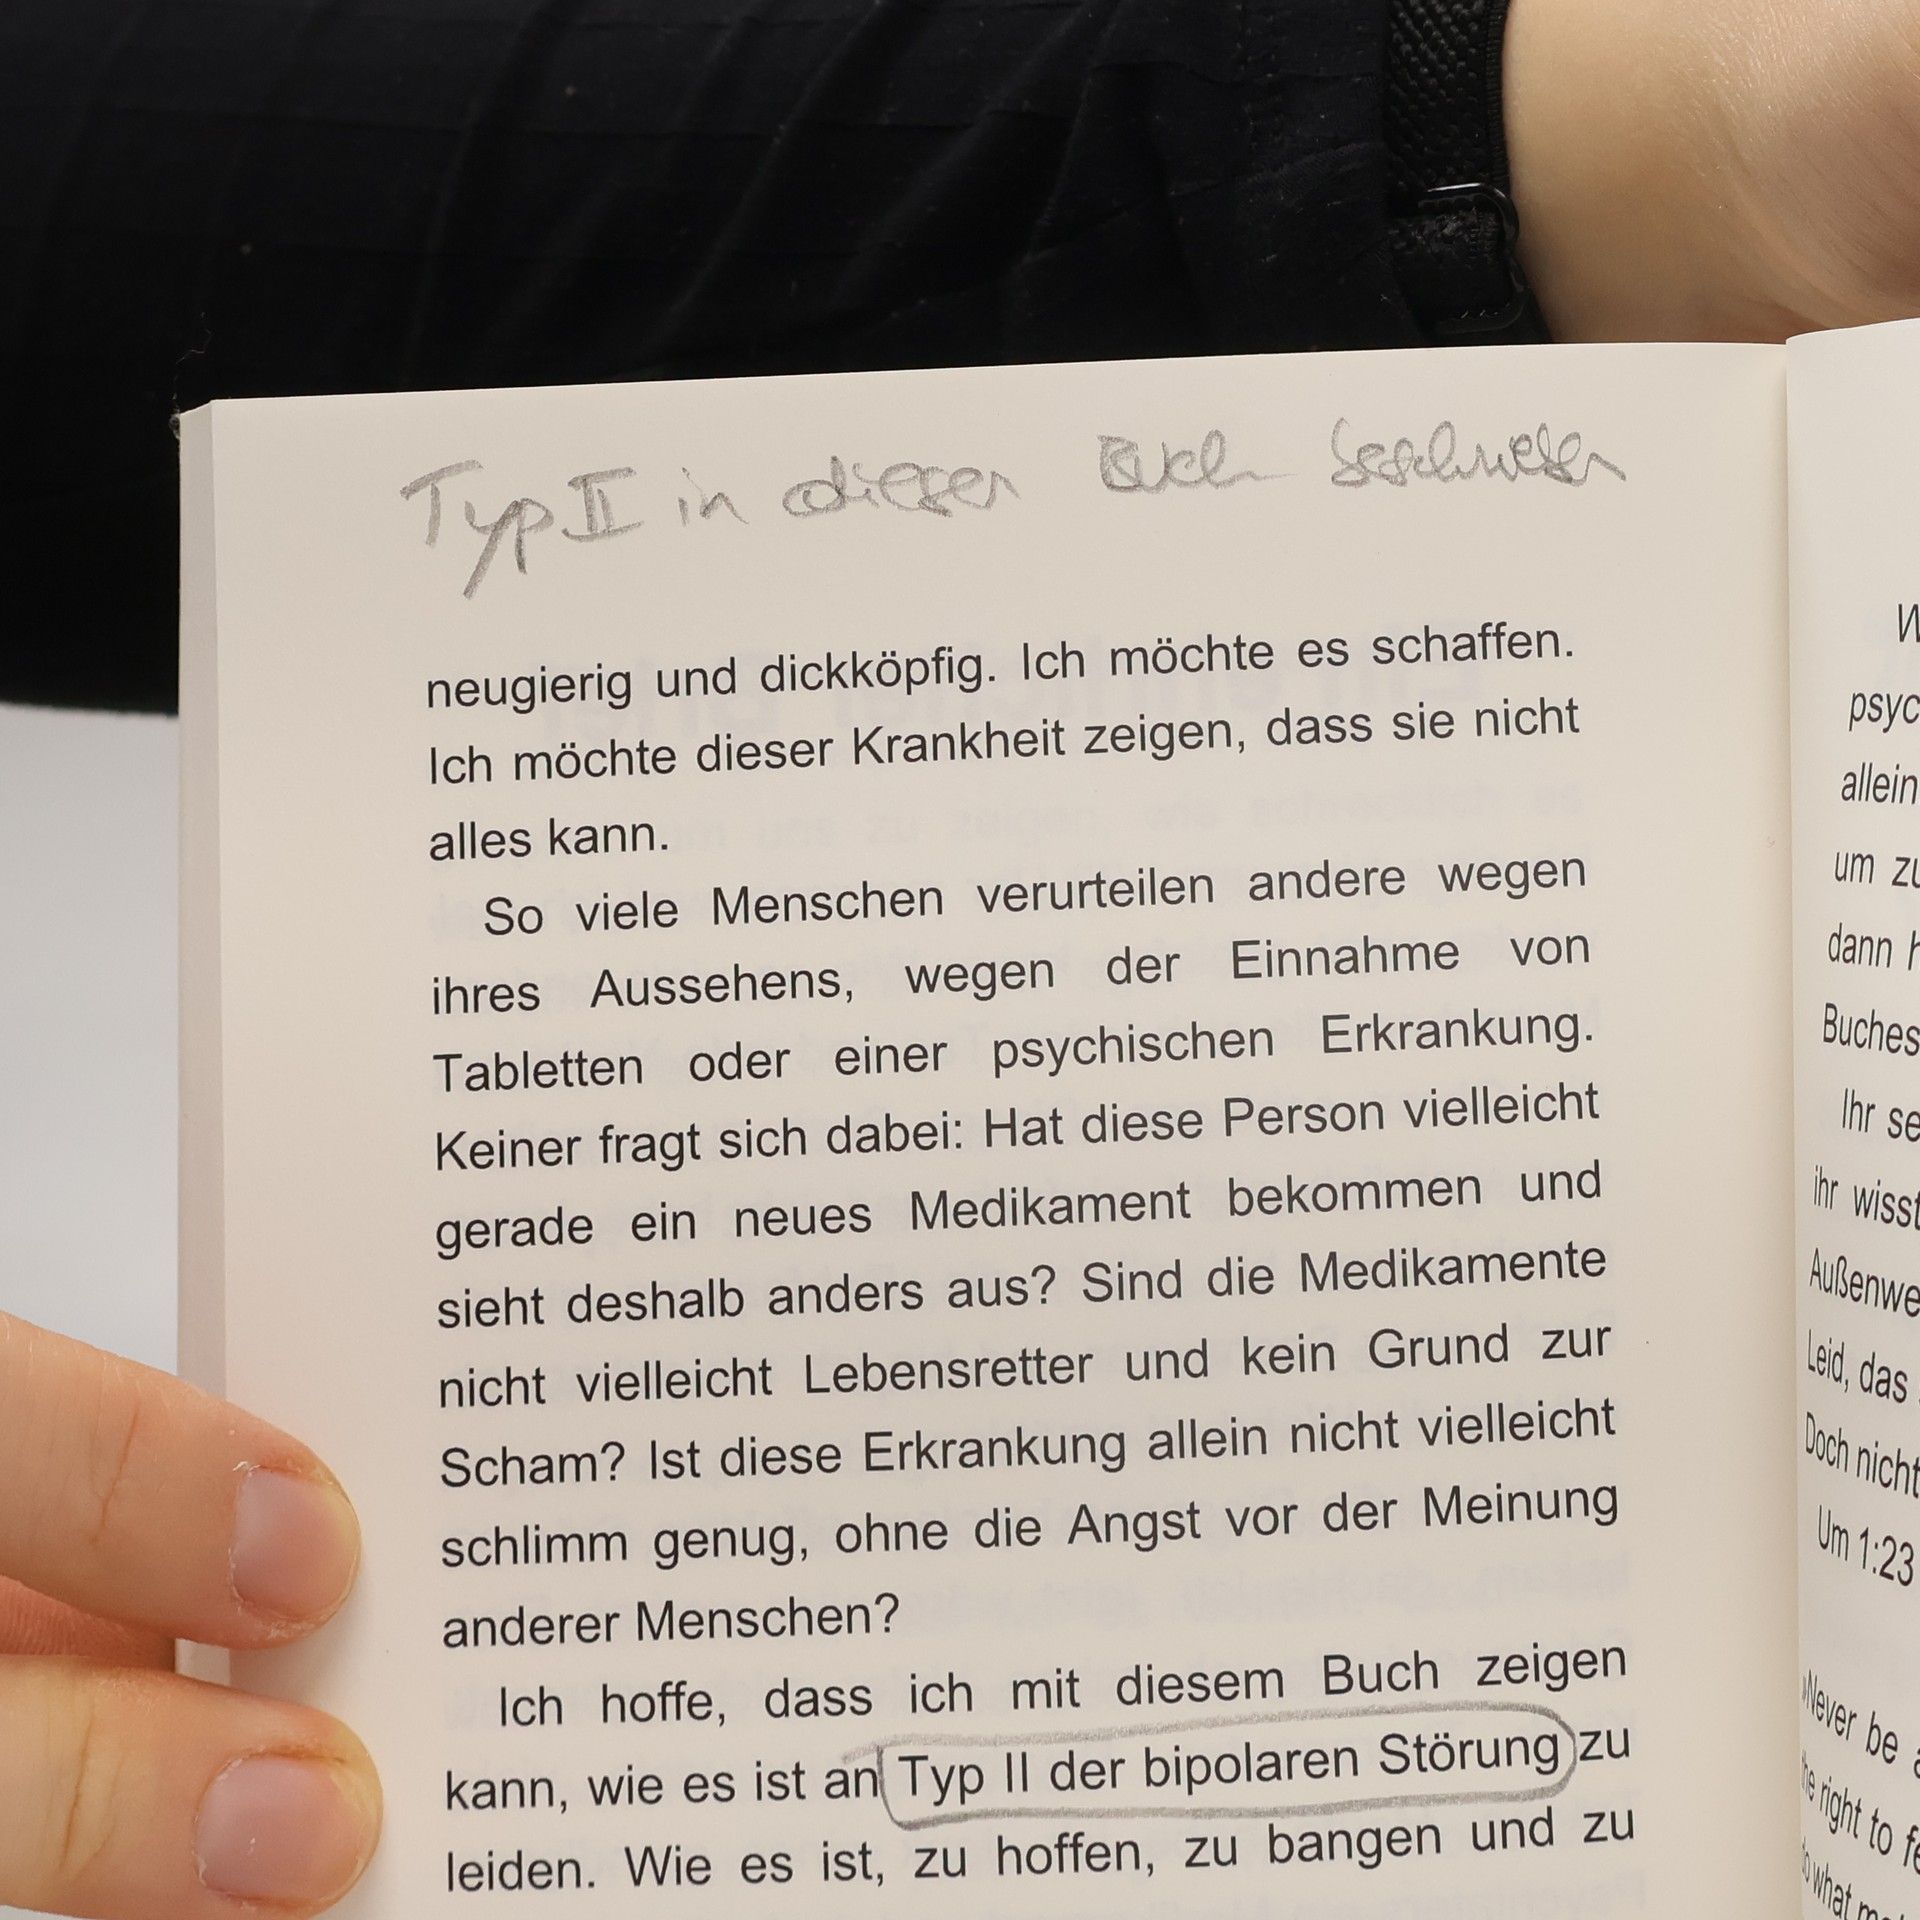 Typ II in dieser Buch beschrieben
neugierig und dickköpfig. Ich möchte es schaffen.
Ich möchte dieser Krankheit zeigen, dass sie nicht
alles kann.
So viele Menschen verurteilen andere wegen
ihres Aussehens, wegen der Einnahme von
Tabletten oder einer psychischen Erkrankung.
Keiner fragt sich dabei: Hat diese Person vielleicht
gerade ein neues Medikament bekommen und
sieht deshalb anders aus? Sind die Medikamente
nicht vielleicht Lebensretter und kein Grund zur
Scham? Ist diese Erkrankung allein nicht vielleicht
schlimm genug, ohne die Angst vor der Meinung
anderer Menschen?
Ich hoffe, dass ich mit diesem Buch zeigen
kann, wie es ist an Typ II der bipolaren Störung zu
leiden. Wie es ist, zu hoffen, zu bangen und zu
allein
um
dann
Buches
Ihr
ihr wisst
Leid, das
Doch nicht
Um 1:23
»Never be
the right to
to what